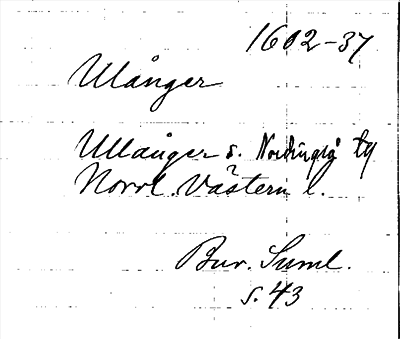 1602-37
Ulånger
Ullånger s. Nordingrå tg
Norrl. Västern l.
Bur. Suml.
s. 43